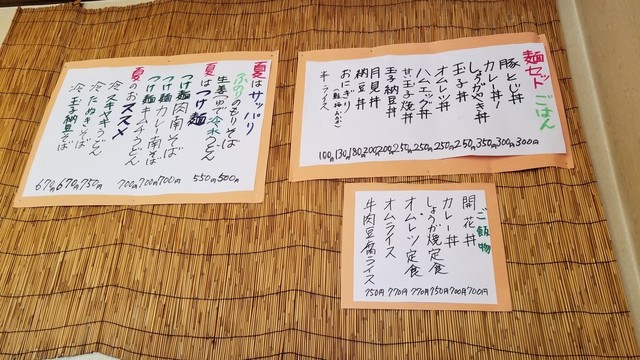 夏はサッパリ
ぶっかけのもりそば 500円
生姜ゆで冷水うどん 550円
夏はつけ麺
つけ麺肉南そば 700円
つけ麺カレー南そば 700円
つけ麺キムチうどん 700円
夏のおススメ
冷スキヤキうどん 750円
冷たぬきそば 670円
冷玉子納豆そば 670円
麺セットごはん
豚とじ丼 300円
カレー丼 300円
しょうがやき丼 350円
玉子丼 250円
オムレツ丼 250円
ハムエッグ丼 250円
甘玉子焼丼 250円
玉子納豆丼 200円
月見丼 200円
納豆丼 180円
おにぎり 130円
半ライス 100円
ご飯物
開花丼 700円
カレー丼 700円
しょうが焼定食 750円
オムレツ定食 770円
オムライス 770円
牛肉豆腐ライス 750円